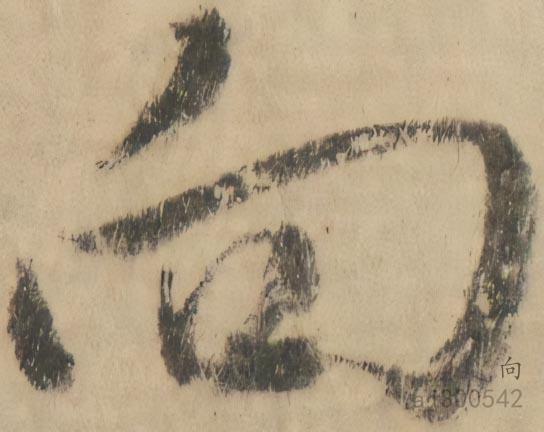 向
向
a1300542